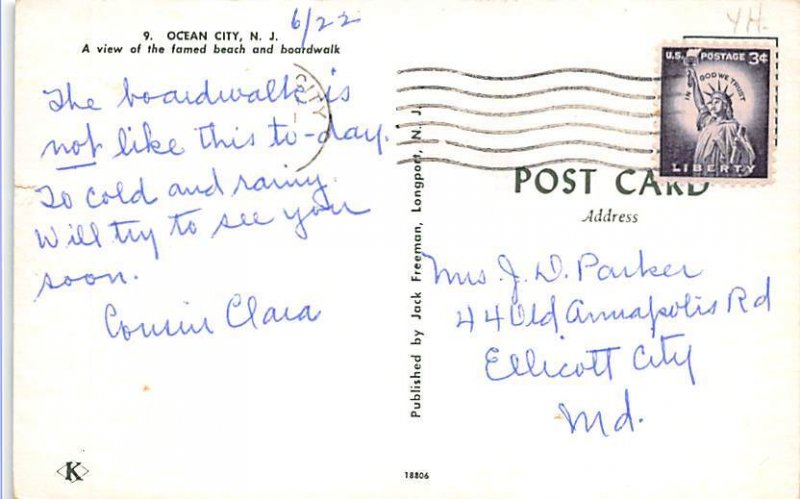 9. OCEAN CITY, N. J.
A view of the famed beach and boardwalk
6/22
The boardwalk is
not like this to-day.
To cold and rainy.
Will try to see you
soon.
Cousin Clara
K
CITY
Published by Jack Freeman, Longport, N. J.
18806
YH.
U.S. POSTAGE 3¢
IN GOD WE TRUST
LIBERTY
POST CARD
Address
Mrs. J. D. Parker
44 Old Annapolis Rd
Ellicott City
Md.